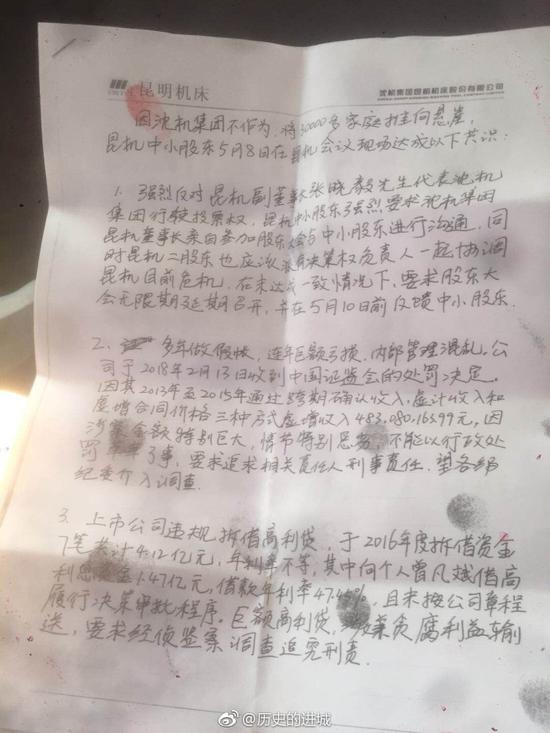 昆明机床
沈机集团昆明机床股份有限公司
因沈机集团不作为，将30000多家庭推向悬崖，
昆机中小股东5月8日在昆机会议现场达成以下共识：
1. 强烈反对昆机副董事长张晓毅先生代表沈机
集团行驶投票权，昆机中小股东强烈要求沈机集团
昆机董事长亲自参加股东大会与中小股东进行沟通，同
时昆机二股东也应该派有决策权负责人一起协调
昆机目前危机，在未达成一致情况下，要求股东大
会无限期延期召开，并在5月10日前反馈中小股东。
2. 多年做假帐，连年巨额亏损，内部管理混乱。公
司于2018年2月13日收到中国证监会的处罚决定。
因其2013年至2015年通过跨期确认收入，虚计收入和
虚增合同价格三种方式虚增收入483,080,165.99元，因
涉案金额特别巨大，情节特别恶劣，不能以行政处
罚草草了事，要求追求相关责任人刑事责任，望各级
纪委介入调查。
3. 上市公司违规拆借高利贷，于2016年度拆借资金
7笔共计4.12亿元，年利率不等，其中向个人曾凡斌借高
利息资金1.47亿元，借款年利率47.45%，且未按公司章程
履行决策审批程序。巨额高利贷，涉嫌贪腐利益输
送，要求经侦鉴案调查追究刑责。
@历史的进城